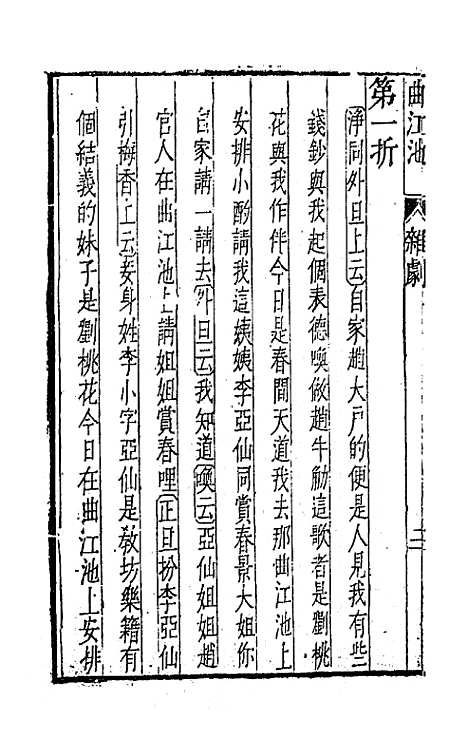 曲江池 雜劇 二
第一折
淨同外旦上云自家趙大戶的便是人見我有些
錢鈔與我起個表德喚做趙牛觔這歌者是劉桃
花與我作伴今日是春間天道我去那曲江池上
安排小酌請我這姨姨李亞仙同賞春景大姐你
自家請一請去外旦云我知道喚云亞仙姐姐趙
官人在曲江池上請姐姐賞春哩正旦扮李亞仙
引梅香上云妾身姓李小字亞仙是教坊樂籍有
個結義的妹子是劉桃花今日在曲江池上安排